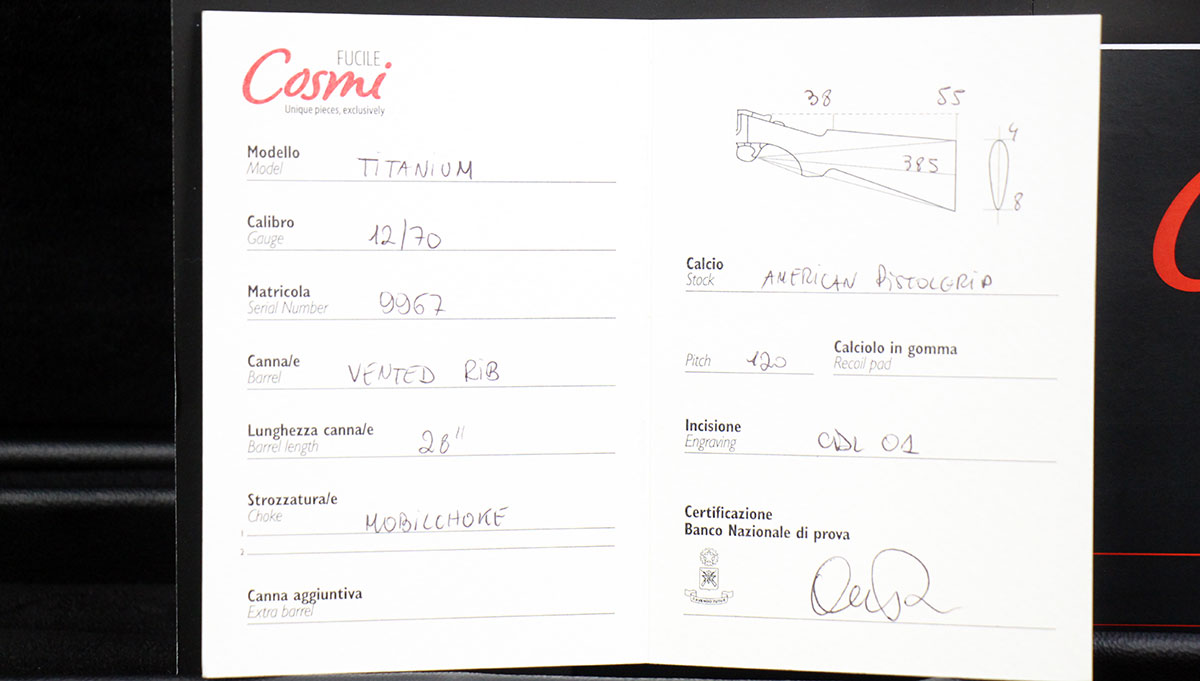 FUCILE
Cosmi
Unique pieces, exclusively
Modello
Model TITANIUM
Calibro
Gauge 12/70
Matricola
Serial Number 9967
Canna/e
Barrel VENTED RIB
Lunghezza canna/e
Barrel length 28"
Strozzatura/e
Choke MOBILCHOKE
1
2
Canna aggiuntiva
Extra barrel
38 55
385
4
8
Calcio
Stock AMERICAN PISTOLGRIP
Pitch 120
Calciolo in gomma
Recoil pad
Incisione
Engraving 01
Certificazione
Banco Nazionale di prova